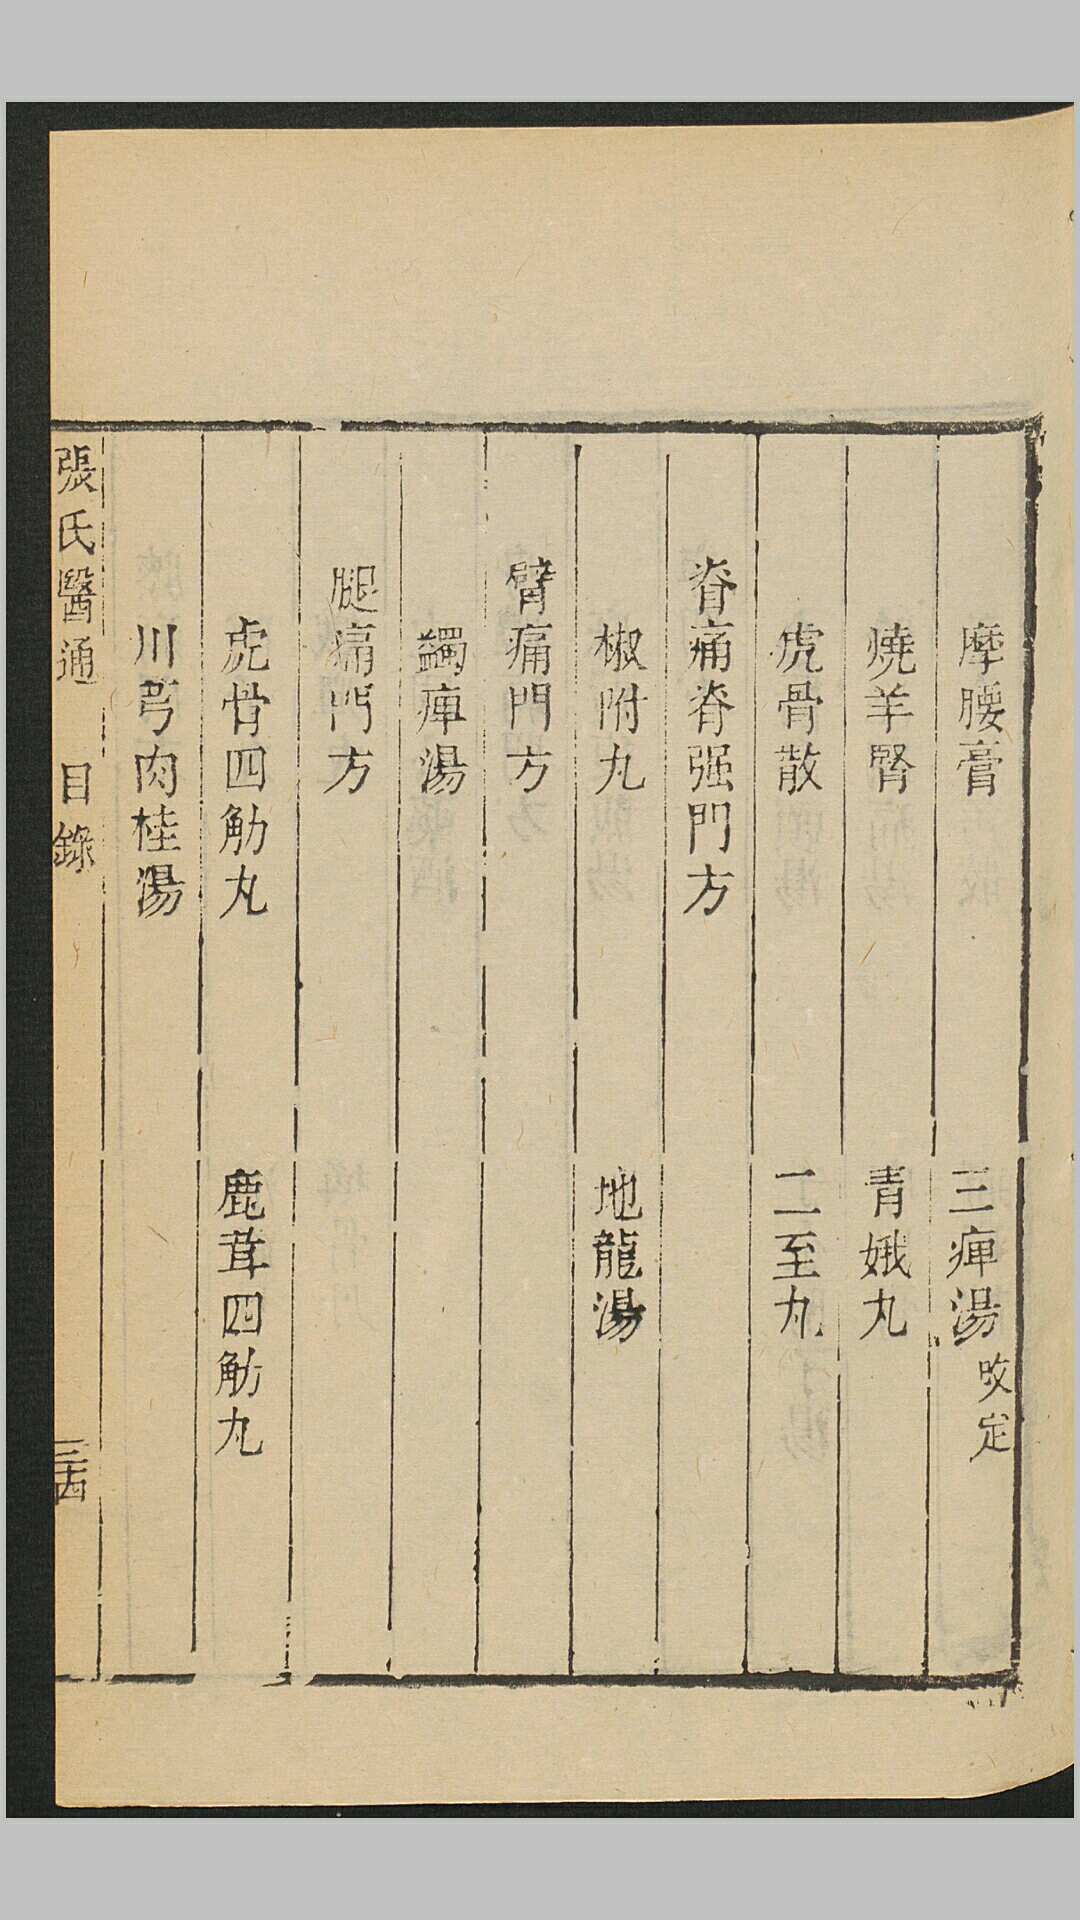 摩腰膏　三痺湯　改定
燒羊腎　青娥丸
虎骨散　二至丸
脊痛脊强門方
椒附丸　地龍湯
臂痛門方
蠲痺湯
腿痛門方
虎骨四觔丸　鹿茸四觔丸
川芎肉桂湯
張氏醫通　目錄　三十四